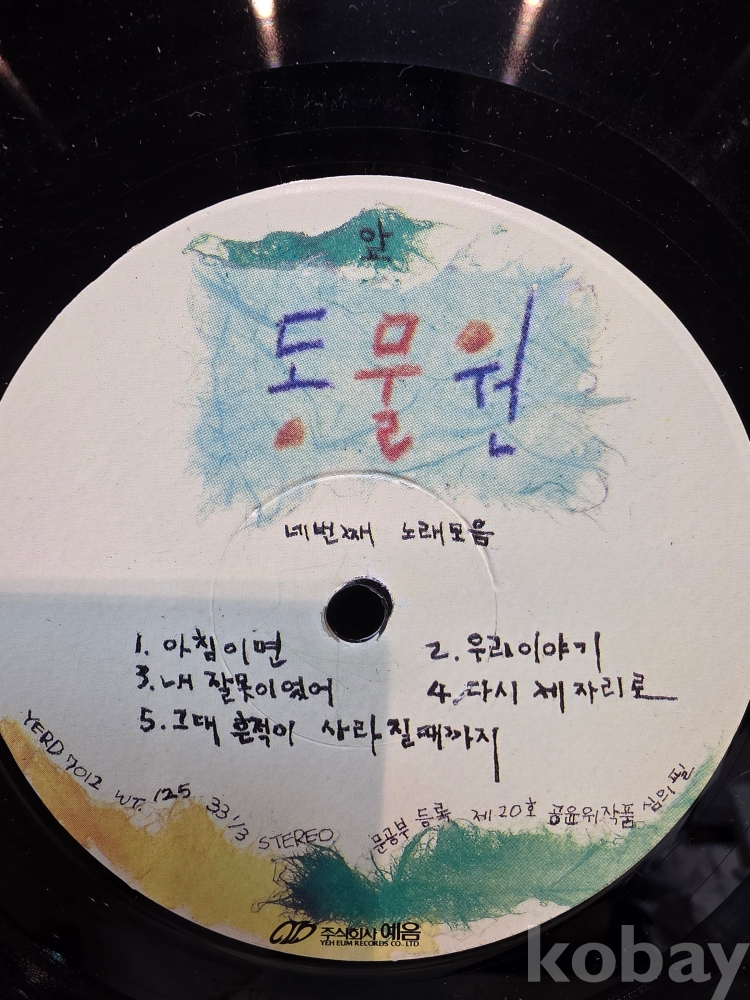 앞
동물원
네번째 노래모음
1. 아침이면 2. 우리이야기
3. 내 잘못이었어 4. 다시 제자리로
5. 그대 흔적이 사라질때까지
YERD 7012 WT. 125 33 1/3 STEREO
문공부 등록 제20호 공윤위작품 심의필
주식회사 예음
YEH EUM RECORDS CO., LTD.
kobay